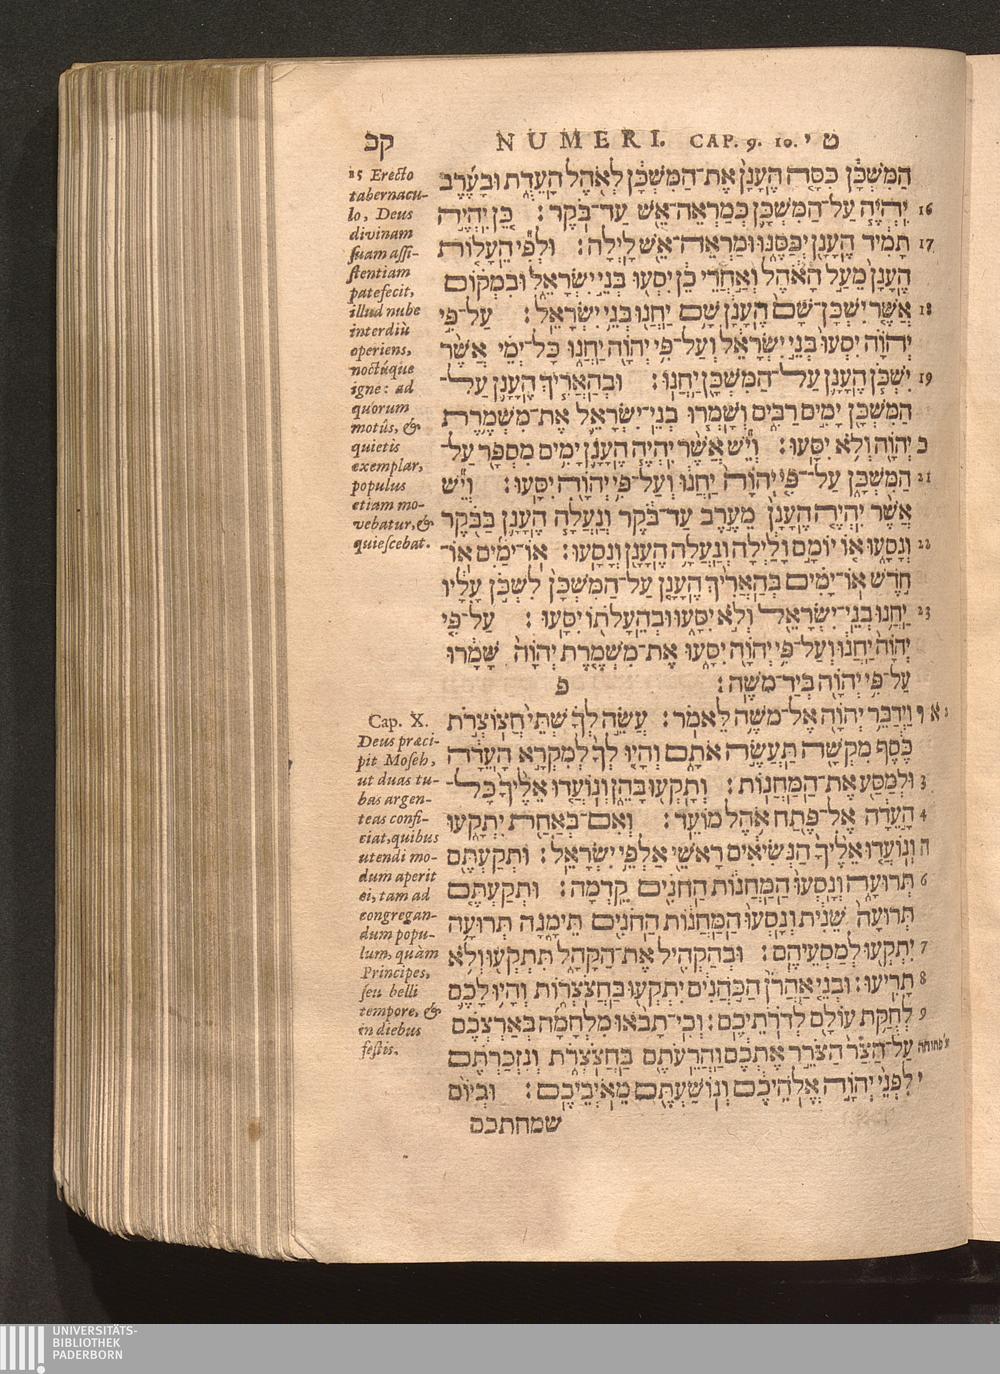 קכ NUMERI. CAP. 9. 10. ט י
15 Erecto
tabernacu-
lo, Deus
divinam
suam assi-
stentiam
patefecit,
illud nube
interdiù
operiens,
noctúque
igne: ad
quorum
motûs, &
quietis
exemplar,
populus
etiam mo-
vebatur, &
quiescebat.
הַמִּשְׁכָּן כִּסָּה הֶעָנָן אֶת־הַמִּשְׁכָּן לְאֹהֶל הָעֵדֻת וּבָעֶרֶב
יִהְיֶה עַל־הַמִּשְׁכָּן כְּמַרְאֵה־אֵשׁ עַד־בֹּקֶר׃ כֵּן יִהְיֶה 16
תָמִיד הֶעָנָן יְכַסֶּנּוּ וּמַרְאֵה־אֵשׁ לָיְלָה׃ וּלְפִי הֵעָלוֹת 17
הֶעָנָן מֵעַל הָאֹהֶל וְאַחֲרֵי כֵן יִסְעוּ בְּנֵי יִשְׂרָאֵל וּבִמְקוֹם
אֲשֶׁר יִשְׁכָּן־שָׁם הֶעָנָן שָׁם יַחֲנוּ בְּנֵי יִשְׂרָאֵל׃ עַל־פִּי 18
יְהוָֹה יִסְעוּ בְּנֵי יִשְׂרָאֵל וְעַל־פִּי יְהוָֹה יַחֲנוּ כָּל־יְמֵי אֲשֶׁר
יִשְׁכֹּן הֶעָנָן עַל־הַמִּשְׁכָּן יַחֲנוּ׃ וּבְהַאֲרִיךְ הֶעָנָן עַל־ 19
הַמִּשְׁכָּן יָמִים רַבִּים וְשָׁמְרוּ בְנֵי־יִשְׂרָאֵל אֶת־מִשְׁמֶרֶת
יְהוָֹה וְלֹא יִסָּעוּ׃ וְיֵשׁ אֲשֶׁר יִהְיֶה הֶעָנָן יָמִים מִסְפָּר עַל־ כ
הַמִּשְׁכָּן עַל־פִּי יְהוָֹה יַחֲנוּ וְעַל־פִּי יְהוָֹה יִסָּעוּ׃ וְיֵשׁ 21
אֲשֶׁר יִהְיֶה הֶעָנָן מֵעֶרֶב עַד־בֹּקֶר וְנַעֲלָה הֶעָנָן בַּבֹּקֶר
וְנָסָעוּ אוֹ יוֹמָם וָלַיְלָה וְנַעֲלָה הֶעָנָן וְנָסָעוּ׃ אוֹ־יֹמַיִם אוֹ־ 22
חֹדֶשׁ אוֹ־יָמִים בְּהַאֲרִיךְ הֶעָנָן עַל־הַמִּשְׁכָּן לִשְׁכֹּן עָלָיו
יַחֲנוּ בְנֵי־יִשְׂרָאֵל וְלֹא יִסָּעוּ וּבְהֵעָלֹתוֹ יִסָּעוּ׃ עַל־פִּי 23
יְהוָֹה יַחֲנוּ וְעַל־פִּי יְהוָֹה יִסָּעוּ אֶת־מִשְׁמֶרֶת יְהוָֹה שָׁמָרוּ
עַל־פִּי יְהוָֹה בְּיַד־מֹשֶׁה׃ פ
Cap. X.
Deus præci-
pit Moseh,
ut duas tu-
bas argen-
teas confi-
ciat, quibus
utendi mo-
dum aperit
ei, tam ad
congregan-
dum popu-
lum, quàm
Principes,
seu belli
tempore, &
in diebus
festis.
וַיְדַבֵּר יְהוָֹה אֶל־מֹשֶׁה לֵּאמֹר׃ עֲשֵׂה לְךָ שְׁתֵּי חֲצוֹצְרֹת א
כֶּסֶף מִקְשָׁה תַּעֲשֶׂה אֹתָם וְהָיוּ לְךָ לְמִקְרָא הָעֵדָה
וּלְמַסַּע אֶת־הַמַּחֲנוֹת׃ וְתָקְעוּ בָּהֵן וְנוֹעֲדוּ אֵלֶיךָ כָּל־ 3
הָעֵדָה אֶל־פֶּתַח אֹהֶל מוֹעֵד׃ וְאִם־בְּאַחַת יִתְקָעוּ 4
וְנוֹעֲדוּ אֵלֶיךָ הַנְּשִׂיאִים רָאשֵׁי אַלְפֵי יִשְׂרָאֵל׃ וּתְקַעְתֶּם ה
תְּרוּעָה וְנָסְעוּ הַמַּחֲנוֹת הַחֹנִים קֵדְמָה׃ וּתְקַעְתֶּם 6
תְּרוּעָה שֵׁנִית וְנָסְעוּ הַמַּחֲנוֹת הַחֹנִים תֵּימָנָה תְּרוּעָה
יִתְקְעוּ לְמַסְעֵיהֶם׃ וּבְהַקְהִיל אֶת־הַקָּהָל תִּתְקְעוּ וְלֹא 7
תָרִיעוּ׃ וּבְנֵי אַהֲרֹן הַכֹּהֲנִים יִתְקְעוּ בַּחֲצֹצְרוֹת וְהָיוּ לָכֶם 8
לְחֻקַּת עוֹלָם לְדֹרֹתֵיכֶם׃ וְכִי־תָבֹאוּ מִלְחָמָה בְּאַרְצְכֶם 9
עַל־הַצַּר הַצֹּרֵר אֶתְכֶם וַהֲרֵעֹתֶם בַּחֲצֹצְרֹת וְנִזְכַּרְתֶּם
לִפְנֵי יְהוָֹה אֱלֹהֵיכֶם וְנוֹשַׁעְתֶּם מֵאֹיְבֵיכֶם׃ וּבְיוֹם י
שמחתכם
UNIVERSITÄTS-
BIBLIOTHEK
PADERBORN